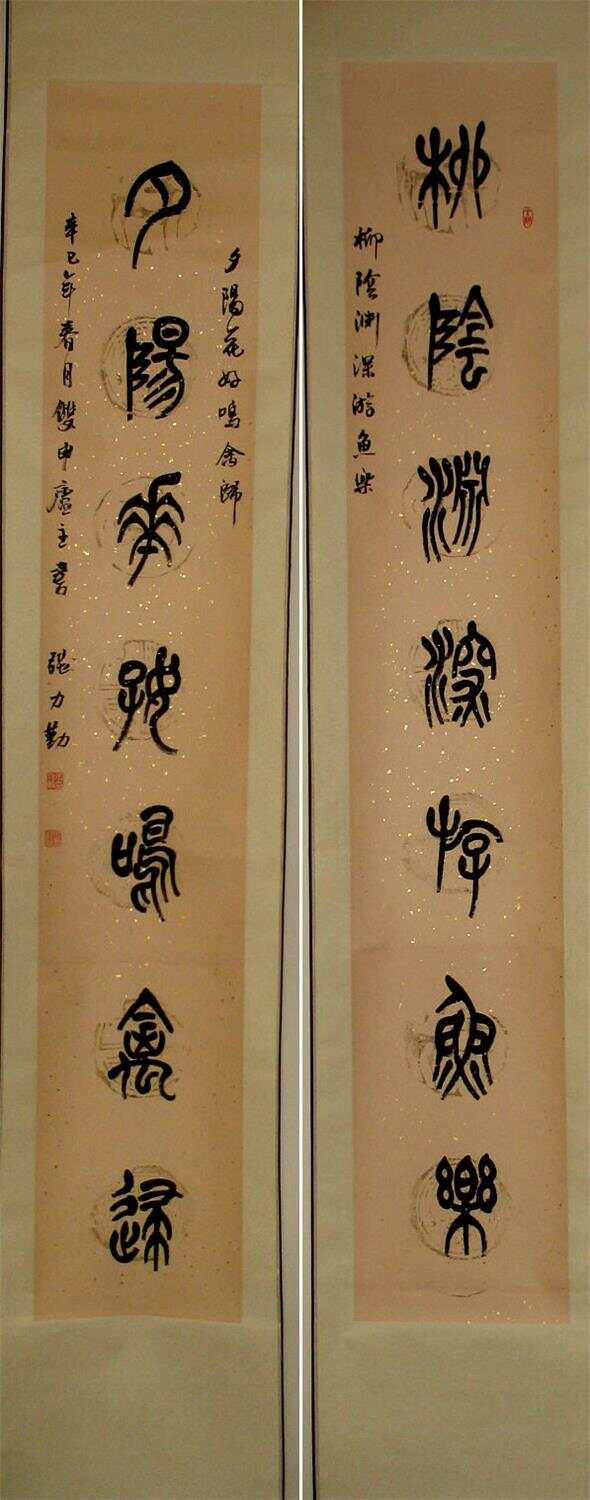 柳陰淵深游魚樂
柳陰淵深游魚樂
夕陽花好鳴禽歸
夕陽花好鳴禽歸
辛巳年春月雙申廬主書 張力勤